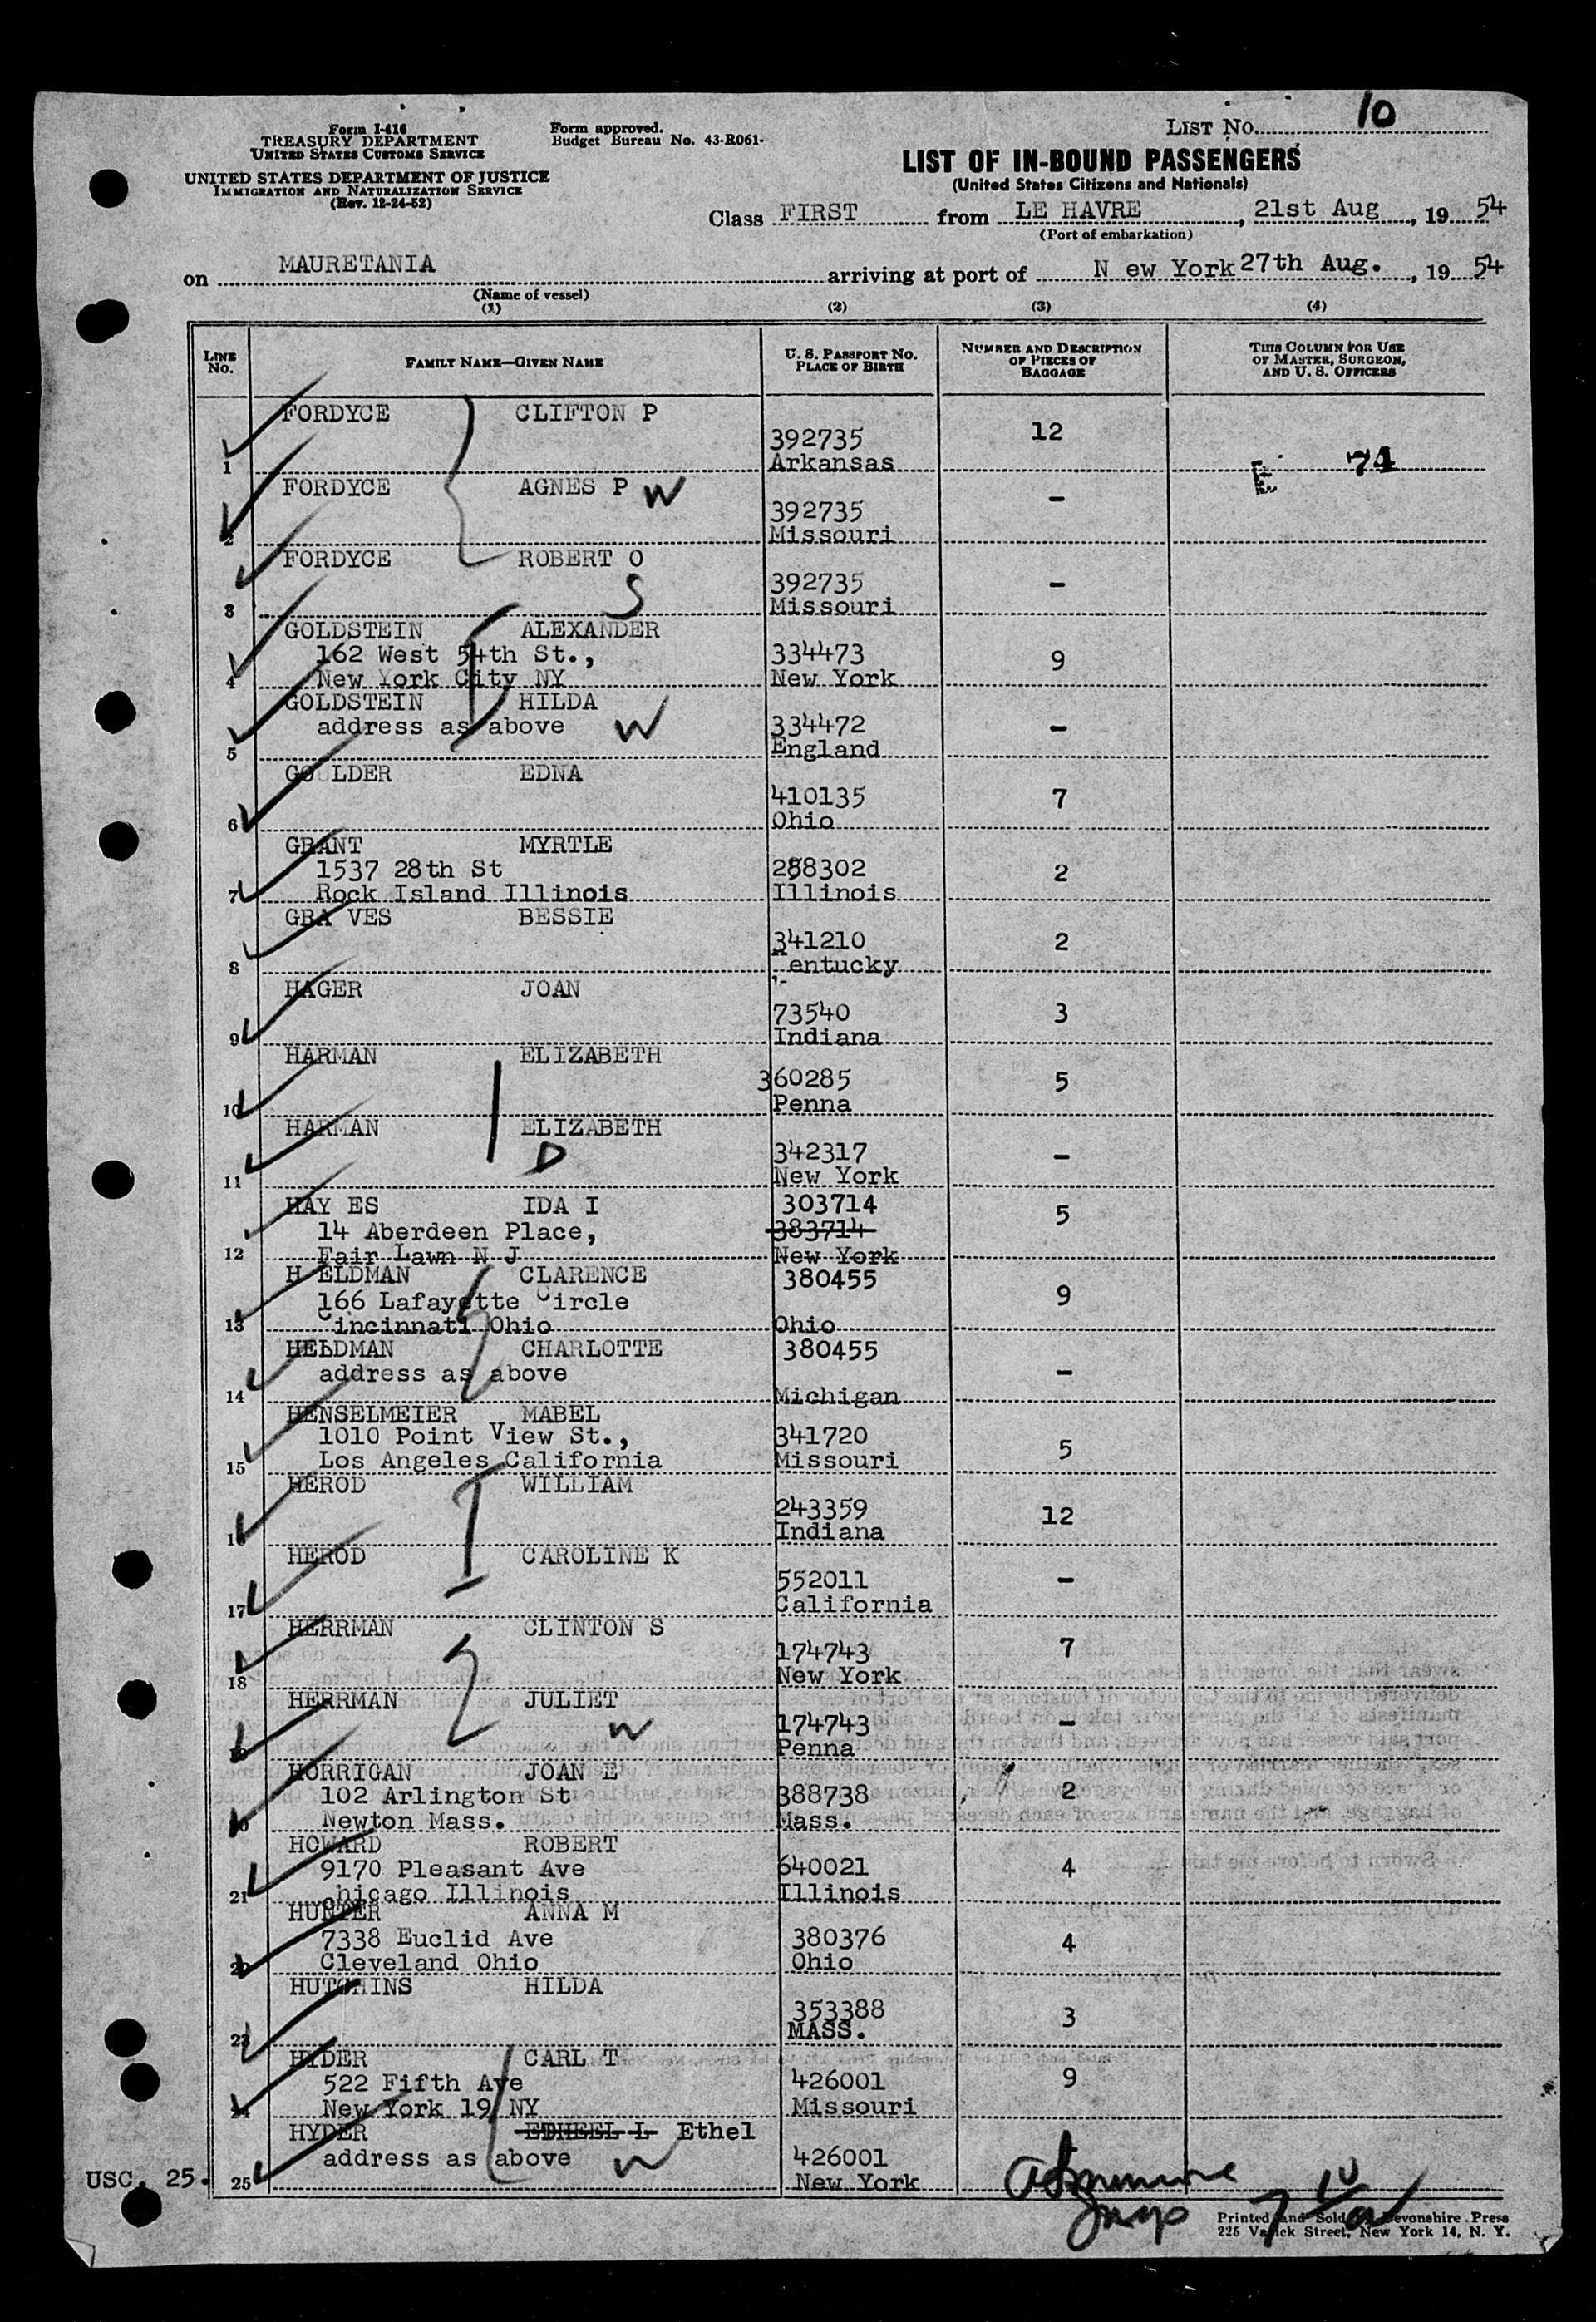 Form I-416
TREASURY DEPARTMENT
UNITED STATES CUSTOMS SERVICE
UNITED STATES DEPARTMENT OF JUSTICE
IMMIGRATION AND NATURALIZATION SERVICE
(Rev. 12-24-52)
Form approved.
Budget Bureau No. 43-R061-
LIST NO. 10
LIST OF IN-BOUND PASSENGERS
(United States Citizens and Nationals)
Class FIRST from LE HAVRE, 21st Aug, 19 54
(Port of embarkation)
on MAURETANIA arriving at port of N ew York 27th Aug., 19 54
(Name of vessel)
(1) (2) (3) (4)
LINE NO. FAMILY NAME—GIVEN NAME U. S. PASSPORT NO. PLACE OF BIRTH NUMBER AND DESCRIPTION OF PIECES OF BAGGAGE THIS COLUMN FOR USE OF MASTER, SURGEON, AND U. S. OFFICERS
FORDYCE CLIFTON P
392735 12
1 Arkansas E 74
FORDYCE AGNES P W
392735 -
2 Missouri
FORDYCE ROBERT O
S 392735 -
3 Missouri
GOLDSTEIN ALEXANDER
162 West 54th St., 334473 9
4 New York City NY New York
GOLDSTEIN HILDA
address as above W 334472 -
5 England
GOULDER EDNA
410135 7
6 Ohio
GRANT MYRTLE
1537 28th St 288302 2
7 Rock Island Illinois Illinois
GRA VES BESSIE
341210 2
8 Kentucky
HAGER JOAN
73540 3
9 Indiana
HARMAN ELIZABETH
360285 5
10 Penna
HARMAN ELIZABETH
D 342317 -
11 New York
HAY ES IDA I 303714
14 Aberdeen Place, 383714 5
12 Fair Lawn N J New York
H ELDMAN CLARENCE 380455
166 Lafayette Circle 9
13 Cincinnati Ohio Ohio
HELDMAN CHARLOTTE 380455
address as above -
14 Michigan
HENSELMEIER MABEL
1010 Point View St., 341720
15 Los Angeles California Missouri 5
HEROD WILLIAM
243359 12
16 Indiana
HEROD CAROLINE K
552011 -
17 California
HERRMAN CLINTON S
174743 7
18 New York
HERRMAN JULIET
W 174743 -
19 Penna
HORRIGAN JOAN E
102 Arlington St 388738 2
20 Newton Mass. Mass.
HOWARD ROBERT
9170 Pleasant Ave 640021 4
21 Chicago Illinois Illinois
HUNTER ANNA M
7338 Euclid Ave 380376 4
22 Cleveland Ohio Ohio
HUTCHINS HILDA
353388 3
23 MASS.
HYDER CARL T
522 Fifth Ave 426001 9
24 New York 19 NY Missouri
HYDER ETHEEL L Ethel
address as above W 426001
USC. 25. 25 New York
Printed and Sold by Devonshire Press
225 Varick Street, New York 14, N. Y.